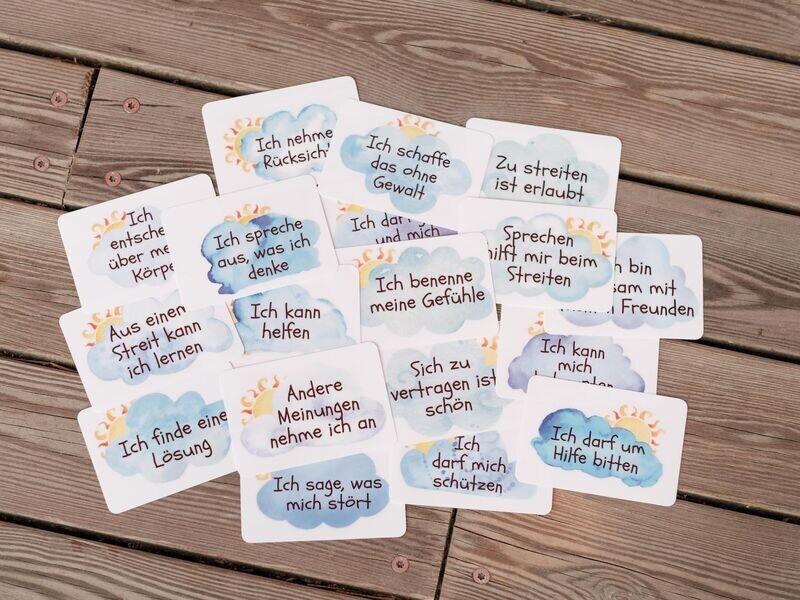 Ich nehme
Rücksicht
Ich schaffe
das ohne
Gewalt
Zu streiten
ist erlaubt
Ich
über
Ich spreche
aus, was ich
denke
Ich
und mich
Sprechen
hilft mir beim
Streiten
bin
mit
Freunden
Ich benenne
meine Gefühle
Aus einem
Streit kann
ich lernen
Ich kann
helfen
Ich kann
mich
Sich zu
vertragen ist
schön
Andere
Meinungen
nehme ich an
Ich finde eine
Lösung
Ich darf um
Hilfe bitten
Ich
darf mich
schützen
Ich sage, was
mich stört